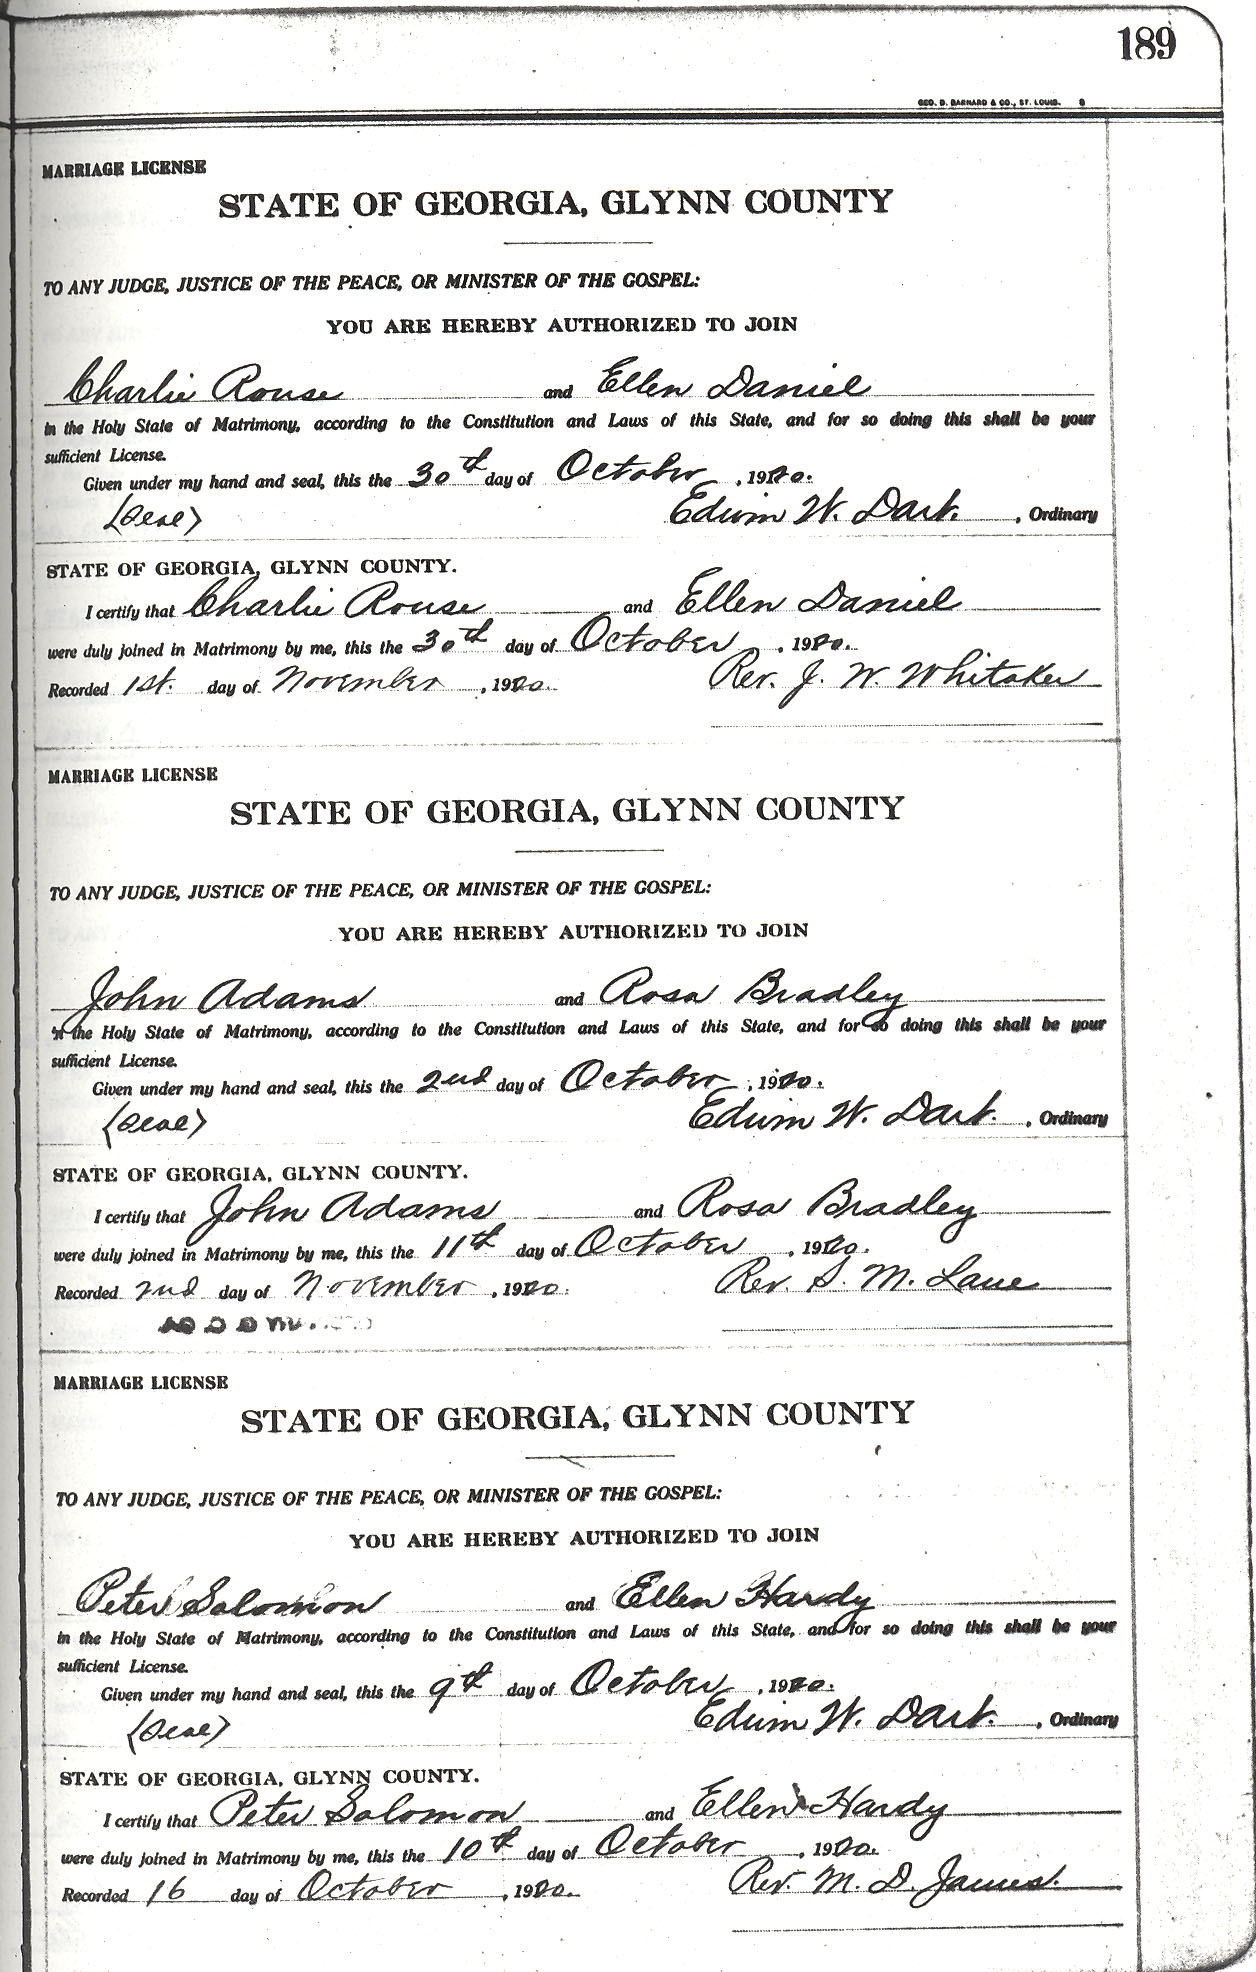 189
GEO. D. BARNARD & CO., ST. LOUIS. 8
MARRIAGE LICENSE
STATE OF GEORGIA, GLYNN COUNTY
TO ANY JUDGE, JUSTICE OF THE PEACE, OR MINISTER OF THE GOSPEL:
YOU ARE HEREBY AUTHORIZED TO JOIN
Charlie Rouse and Ellen Daniel
in the Holy State of Matrimony, according to the Constitution and Laws of this State, and for so doing this shall be your
sufficient License.
Given under my hand and seal, this the 30th day of October, 1920.
(Seal) Edwin W. Dart. , Ordinary
STATE OF GEORGIA, GLYNN COUNTY.
I certify that Charlie Rouse and Ellen Daniel
were duly joined in Matrimony by me, this the 30th day of October, 1920.
Recorded 1st. day of November, 1920. Rev. J. W. Whitaker
MARRIAGE LICENSE
STATE OF GEORGIA, GLYNN COUNTY
TO ANY JUDGE, JUSTICE OF THE PEACE, OR MINISTER OF THE GOSPEL:
YOU ARE HEREBY AUTHORIZED TO JOIN
John Adams and Rosa Bradley
in the Holy State of Matrimony, according to the Constitution and Laws of this State, and for so doing this shall be your
sufficient License.
Given under my hand and seal, this the 2nd day of October, 1920.
(Seal) Edwin W. Dart. , Ordinary
STATE OF GEORGIA, GLYNN COUNTY.
I certify that John Adams and Rosa Bradley
were duly joined in Matrimony by me, this the 11th day of October, 1920.
Recorded 2nd day of November, 1920. Rev. S. M. Lane
MARRIAGE LICENSE
STATE OF GEORGIA, GLYNN COUNTY
TO ANY JUDGE, JUSTICE OF THE PEACE, OR MINISTER OF THE GOSPEL:
YOU ARE HEREBY AUTHORIZED TO JOIN
Peter Solomon and Ellen Hardy
in the Holy State of Matrimony, according to the Constitution and Laws of this State, and for so doing this shall be your
sufficient License.
Given under my hand and seal, this the 9th day of October, 1920.
(Seal) Edwin W. Dart. , Ordinary
STATE OF GEORGIA, GLYNN COUNTY.
I certify that Peter Solomon and Ellen Hardy
were duly joined in Matrimony by me, this the 10th day of October, 1920.
Recorded 16 day of October, 1920. Rev. M. D. James.